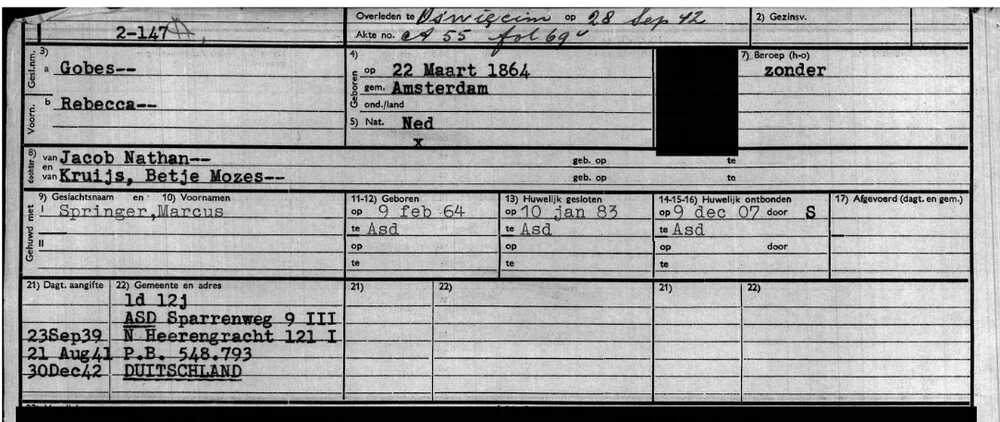 2-147
Overleden te Oświęcim op 28 Sep 42
2) Gezinsv.
Akte no. A 55 fol 69
3)
Gesl.nm.
a Gobes--
Voorn.
b Rebecca--
4)
Geboren
op 22 Maart 1864
gem. Amsterdam
ond./land
5) Nat. Ned
x
7) Beroep (h-o)
zonder
8)
dochter
van Jacob Nathan-- geb. op te
en
van Kruijs, Betje Mozes-- geb. op te
Gehuwd met
9) Geslachtsnaam en 10) Voornamen
I Springer,Marcus
II
11-12) Geboren
op 9 feb 64
te Asd
op
te
13) Huwelijk gesloten
op 10 jan 83
te Asd
op
te
14-15-16) Huwelijk ontbonden
op 9 dec 07 door S
te Asd
op door
te
17) Afgevoerd (dagt. en gem.)
21) Dagt. aangifte 22) Gemeente en adres 21) 22) 21) 22)
ld 12j
ASD Sparrenweg 9 III
23Sep39 N Heerengracht 121 I
21 Aug41 P.B. 548.793
30Dec42 DUITSCHLAND